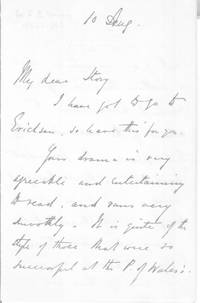 10 Aug.
My dear Story
I have got to go to
Erickson, so leave this for you.
Your drama is very
agreeable and entertaining
to read, and runs very
smoothly. It is quite of the
style of those that were so
successful at the P. of Wales's.